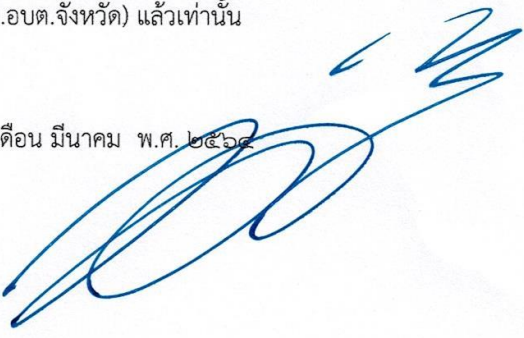 .อบต.จังหวัด) แล้วเท่านั้น
ดือน มีนาคม พ.ศ. ๒๕๖๔